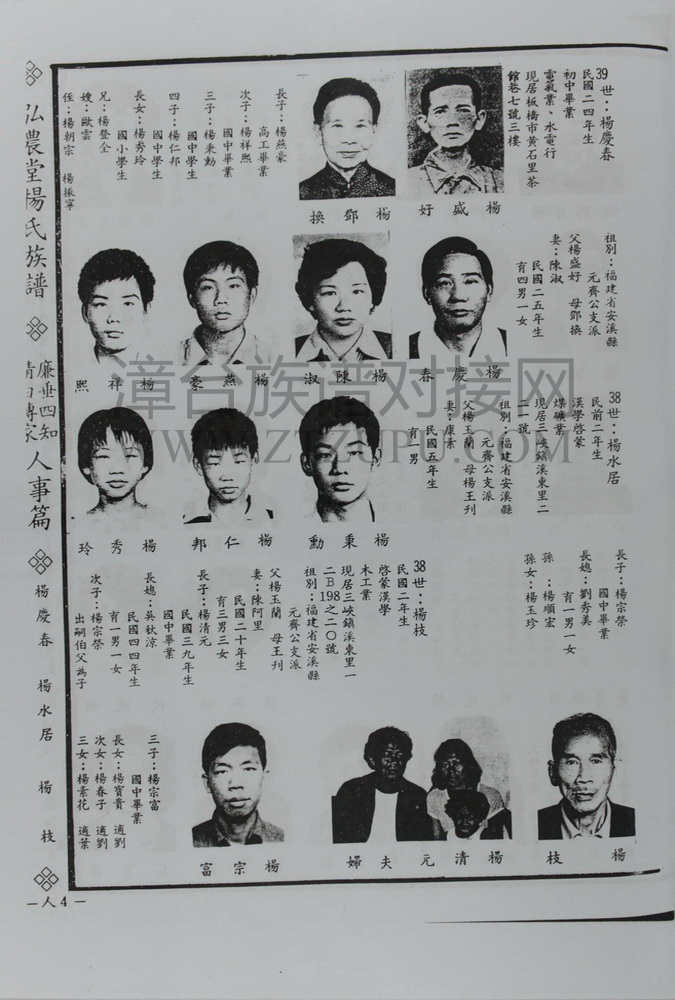 39世：楊慶春
民國二四年生
初中畢業
電氣業、水電行
現居板橋市黃石里茶
館巷七號三樓
楊盛好
楊鄧換
長子：楊燕豪
高工畢業
次子：楊祥熙
國中畢業
三子：楊秉勳
國中學生
四子：楊仁邦
國中學生
長女：楊秀玲
國小學生
兄：楊登全
嫂：歐雲
侄：楊朝宗　楊振寧
祖別：福建省安溪縣
元齊公支派
父楊盛好　母鄧換
妻：陳淑
民國二五年生
育四男一女
楊慶春
楊陳淑
楊燕豪
楊祥熙
38世：楊水居
民前二年生
漢學啓蒙
煤礦業
現居三峽鎮溪東里二
二一號
祖別：福建省安溪縣
元齊公支派
父楊玉蘭　母楊王刋
妻：康素
民國五年生
育一男
楊秉勳
楊仁邦
楊秀玲
長子：楊宗榮
國中畢業
長媳：劉秀美
育一男一女
孫：楊順宏
孫女：楊玉珍
38世：楊枝
民國二年生
啓蒙漢學
木工業
現居三峽鎮溪東里一
二B198之二〇號
祖別：福建省安溪縣
元齊公支派
父楊玉蘭　母王刋
妻：陳阿里
民國二十年生
育三男三女
長子：楊清元
民國三九年生
國中畢業
長媳：吳秋涼
民國四四年生
育一男一女
次子：楊宗榮
出嗣伯父為子
楊枝
楊清元夫婦
楊宗富
三子：楊宗富
國中畢業
長女：楊寶貴　適劉
次女：楊春子　適劉
三女：楊素花　適葉
弘農堂楊氏族譜
廉垂四知
清白傳家
人事篇
楊慶春　楊水居　楊枝
－人4－
漳台族谱对接网
WWW.ZTZUPU.COM